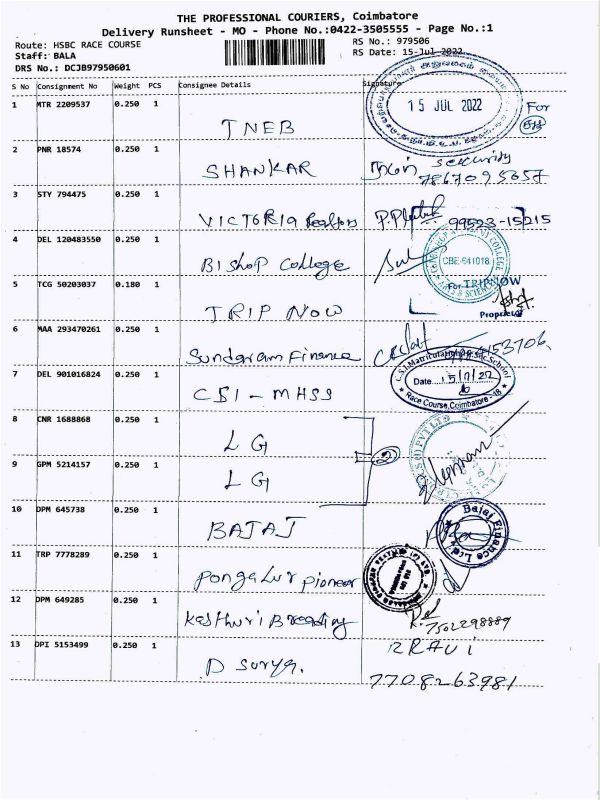 THE PROFESSIONAL COURIERS, Coimbatore
Delivery Runsheet - MO - Phone No.:0422-3505555 - Page No.:1
Route: HSBC RACE COURSE
Staff: BALA
DRS No.: DCJB97950601
RS No.: 979506
RS Date: 15-Jul-2022
S No Consignment No Weight PCS Consignee Details Signature
1 MTR 2209537 0.250 1 TNEB
15 JUL 2022 For
2 PNR 18574 0.250 1 SHANKAR security
7867095657
3 STY 794475 0.250 1 VICTORIA 99523-15215
4 DEL 120483550 0.250 1 Bishop College
CBE-641018
5 TCG 50203037 0.180 1 TRIP NOW
For TRIPNOW
Proprietor
6 MAA 293470261 0.250 1 Sundaram Finance
7 DEL 901016824 0.250 1 CSI - MHSS
C.S.I.Matriculation Hr.Sec.School
Date 15/7/22
Race Course,Coimbatore-18
8 CNR 1688868 0.250 1 LG
9 GPM 5214157 0.250 1 LG
10 DPM 645738 0.250 1 BAJAJ
Bajaj Finance Ltd
11 TRP 7778289 0.250 1 Pongalur pioneer
12 DPM 649285 0.250 1 Kasthuri Breeding
7502298889
13 DPI 5153499 0.250 1 D Surya.
R RAVI
7708263981